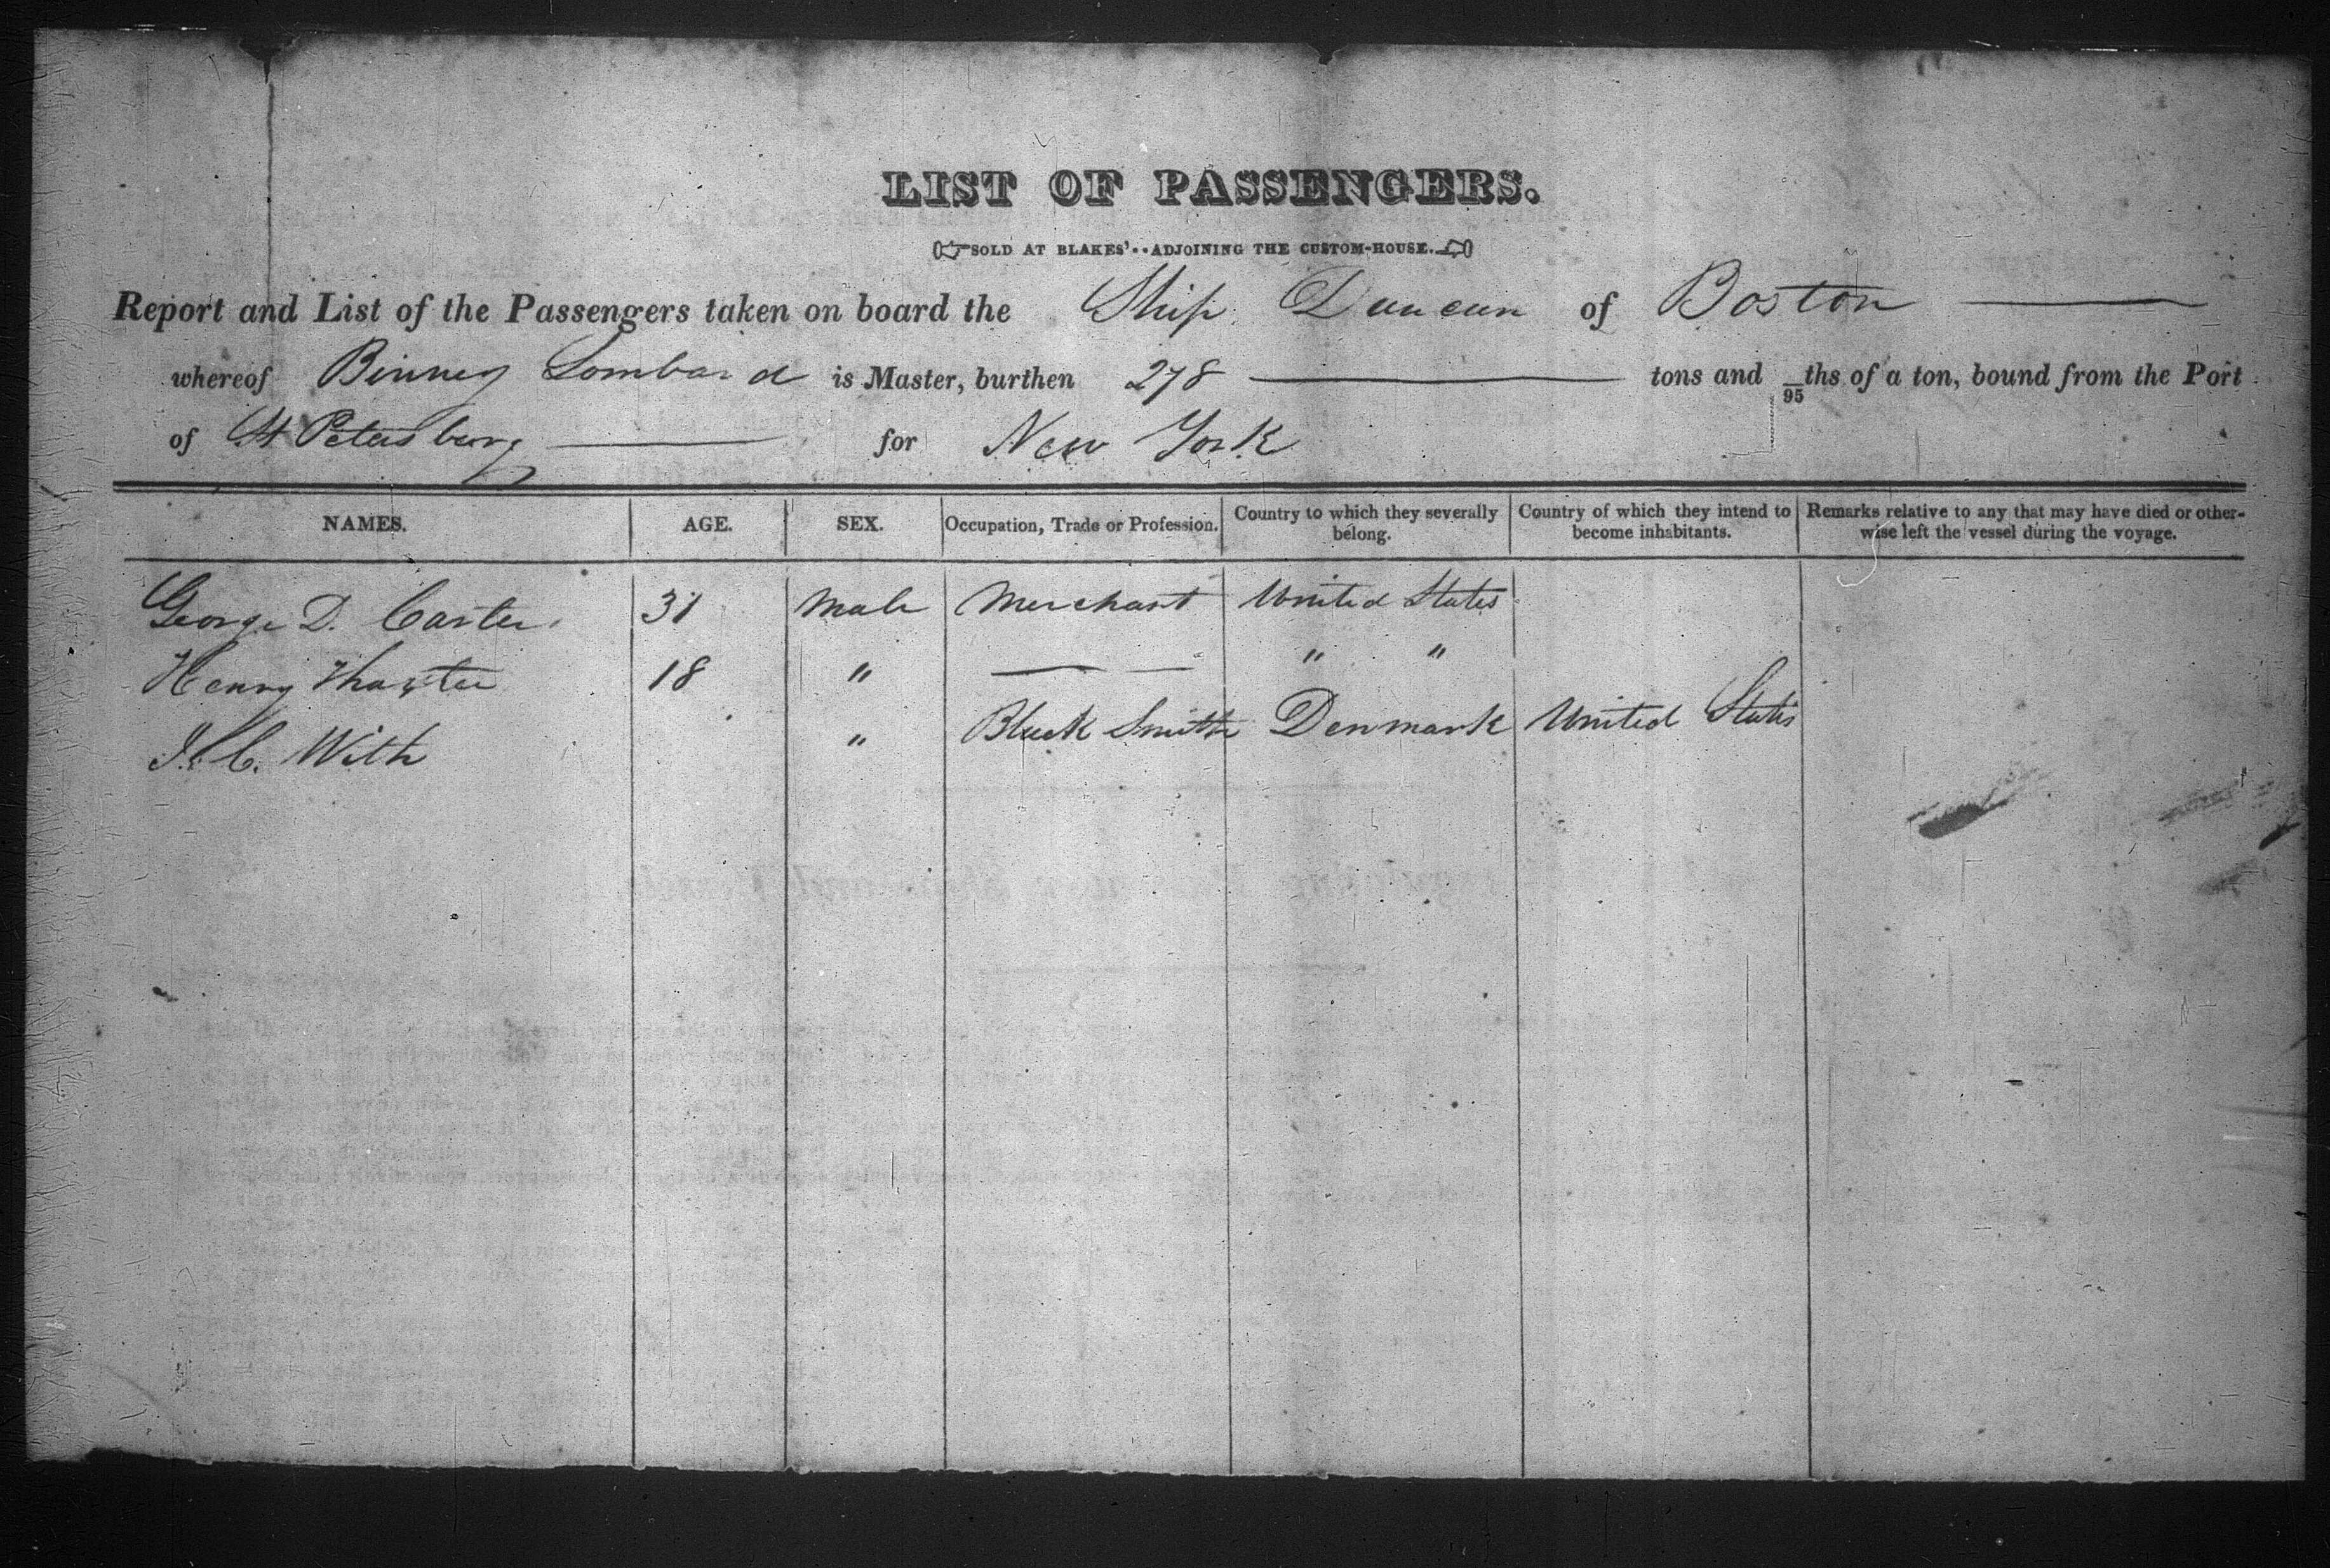 LIST OF PASSENGERS.
SOLD AT BLAKES'..ADJOINING THE CUSTOM-HOUSE.
Report and List of the Passengers taken on board the Ship Duncan of Boston
whereof Binney Lombard is Master, burthen 278 tons and /95 ths of a ton, bound from the Port
of St Petersburg for New York
NAMES. AGE. SEX. Occupation, Trade or Profession. Country to which they severally belong. Country of which they intend to become inhabitants. Remarks relative to any that may have died or otherwise left the vessel during the voyage.
George D. Carter 31 Male Merchant United States
Henry Thaxter 18 " — " "
J. C. With " Black Smith Denmark United States